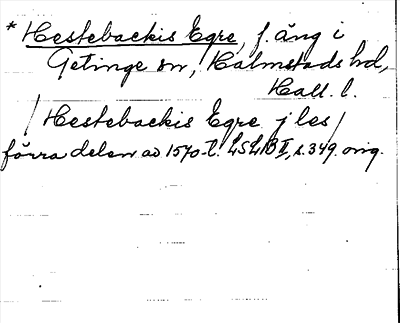 * Hestebackis Egre, f. äng i
Getinge sn, Halmstads hd,
Hall. l.
/ Hestebackis Egre j les /
förra delen av 1570-t. LSLB II, s. 349. orig.